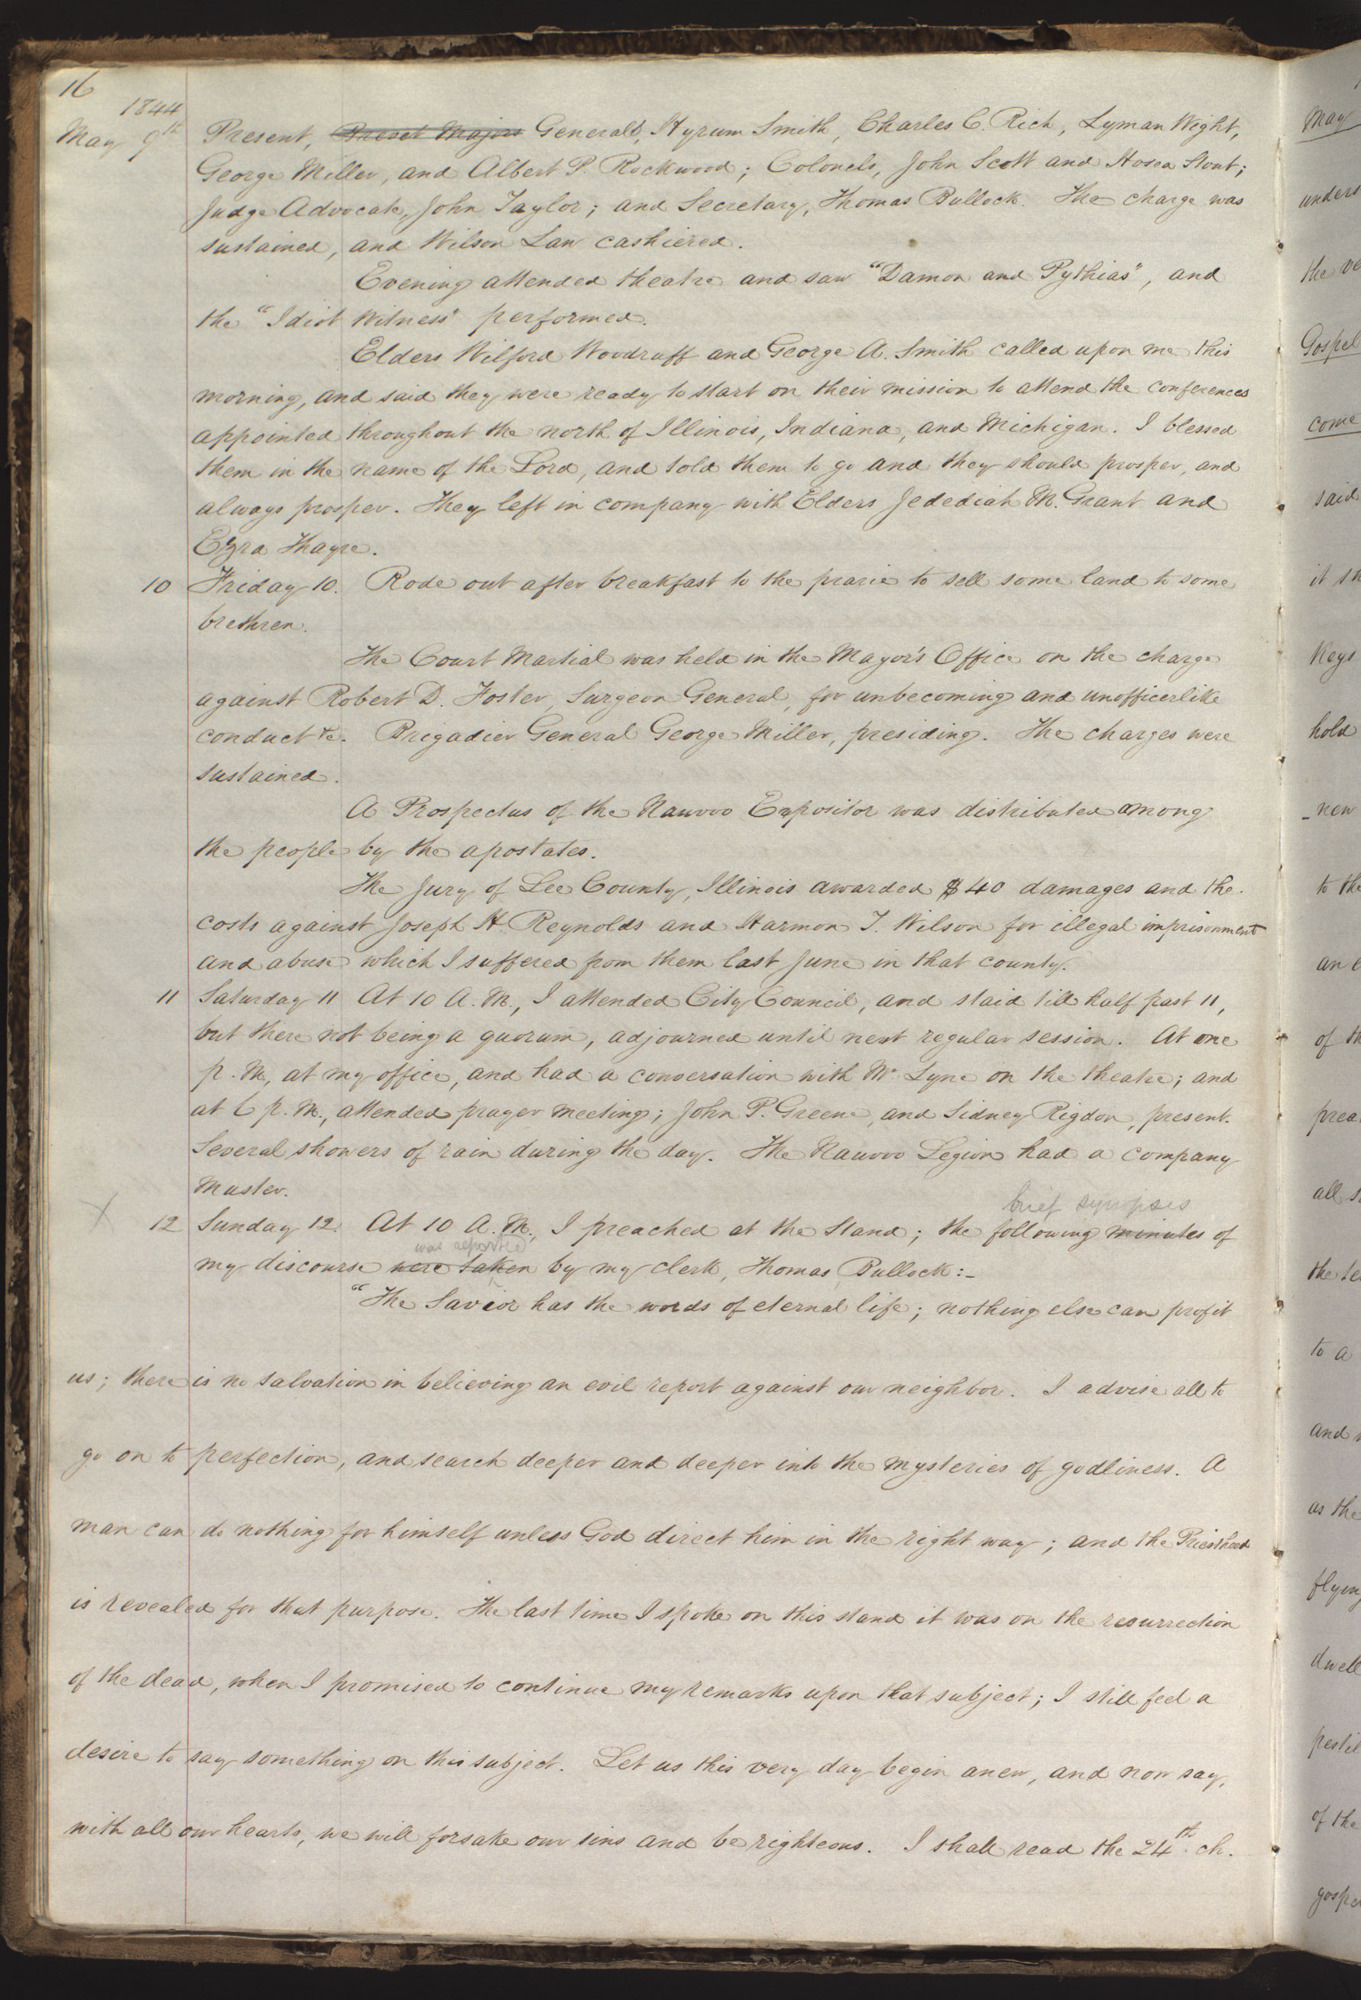 16
1844
May 9th Present, Brevet Majors Generals, Hyrum Smith, Charles C. Rich, Lyman Wight,
George Miller, and Albert P. Rockwood; Colonels, John Scott and Hosea Stout;
Judge Advocate, John Taylor; and Secretary, Thomas Bullock. The charge was
sustained, and Wilson Law cashiered.
Evening attended theatre and saw "Damon and Pythias", and
the "Idiot Witness" performed.
Elders Wilford Woodruff and George A. Smith called upon me this
morning, and said they were ready to start on their mission to attend the conferences
appointed throughout the north of Illinois, Indiana, and Michigan. I blessed
them in the name of the Lord, and told them to go and they should prosper, and
always prosper. They left in company with Elders Jedediah M. Grant and
Ezra Thayre.
10 Friday 10. Rode out after breakfast to the prarie to sell some land to some
brethren.
The Court Martial was held in the Mayor's Office on the charge
against Robert D. Foster, Surgeon General, for unbecoming and unofficerlike
conduct &c. Brigadier General George Miller, presiding. The charges were
sustained.
A Prospectus of the Nauvoo Expositor was distributed among
the people by the apostates.
The Jury of Lee County, Illinois awarded $40 damages and the
costs against Joseph H. Reynolds and Harmon T. Wilson for illegal imprisonment
and abuse which I suffered from them last June in that county.
11 Saturday 11 At 10 A.M., I attended City Council, and staid till half past 11,
but there not being a quorum, adjourned until next regular session. At one
p.M, at my office, and had a conversation with Mr Lyne on the theatre; and
at 6 p.M., attended prayer meeting; John P. Greene, and Sidney Rigdon, present.
Several showers of rain during the day. The Nauvoo Legion had a company
Muster.
brief synopsis
X 12 Sunday 12 At 10 A.M., I preached at the Stand; the following minutes of
was reported
my discourse were taken by my clerk, Thomas Bullock:-
"The Savior has the words of eternal life; nothing else can profit
us; there is no salvation in believing an evil report against our neighbor. I advise all to
go on to perfection, and search deeper and deeper into the mysteries of godliness. A
man can do nothing for himself unless God direct him in the right way; and the Priesthood
is revealed for that purpose. The last time I spoke on this stand it was on the resurrection
of the dead, when I promised to continue my remarks upon that subject; I still feel a
desire to say something on this subject. Let us this very day begin anew, and now say,
with all our hearts, we will forsake our sins and be righteous. I shall read the 24th ch.
May
unders
the ve
Gospel
come
said
it sh
Keys
hold
new
to the
an e
of th
prea
all s
the te
to a
and
as the
flying
dwell
pestil
of the
gospe